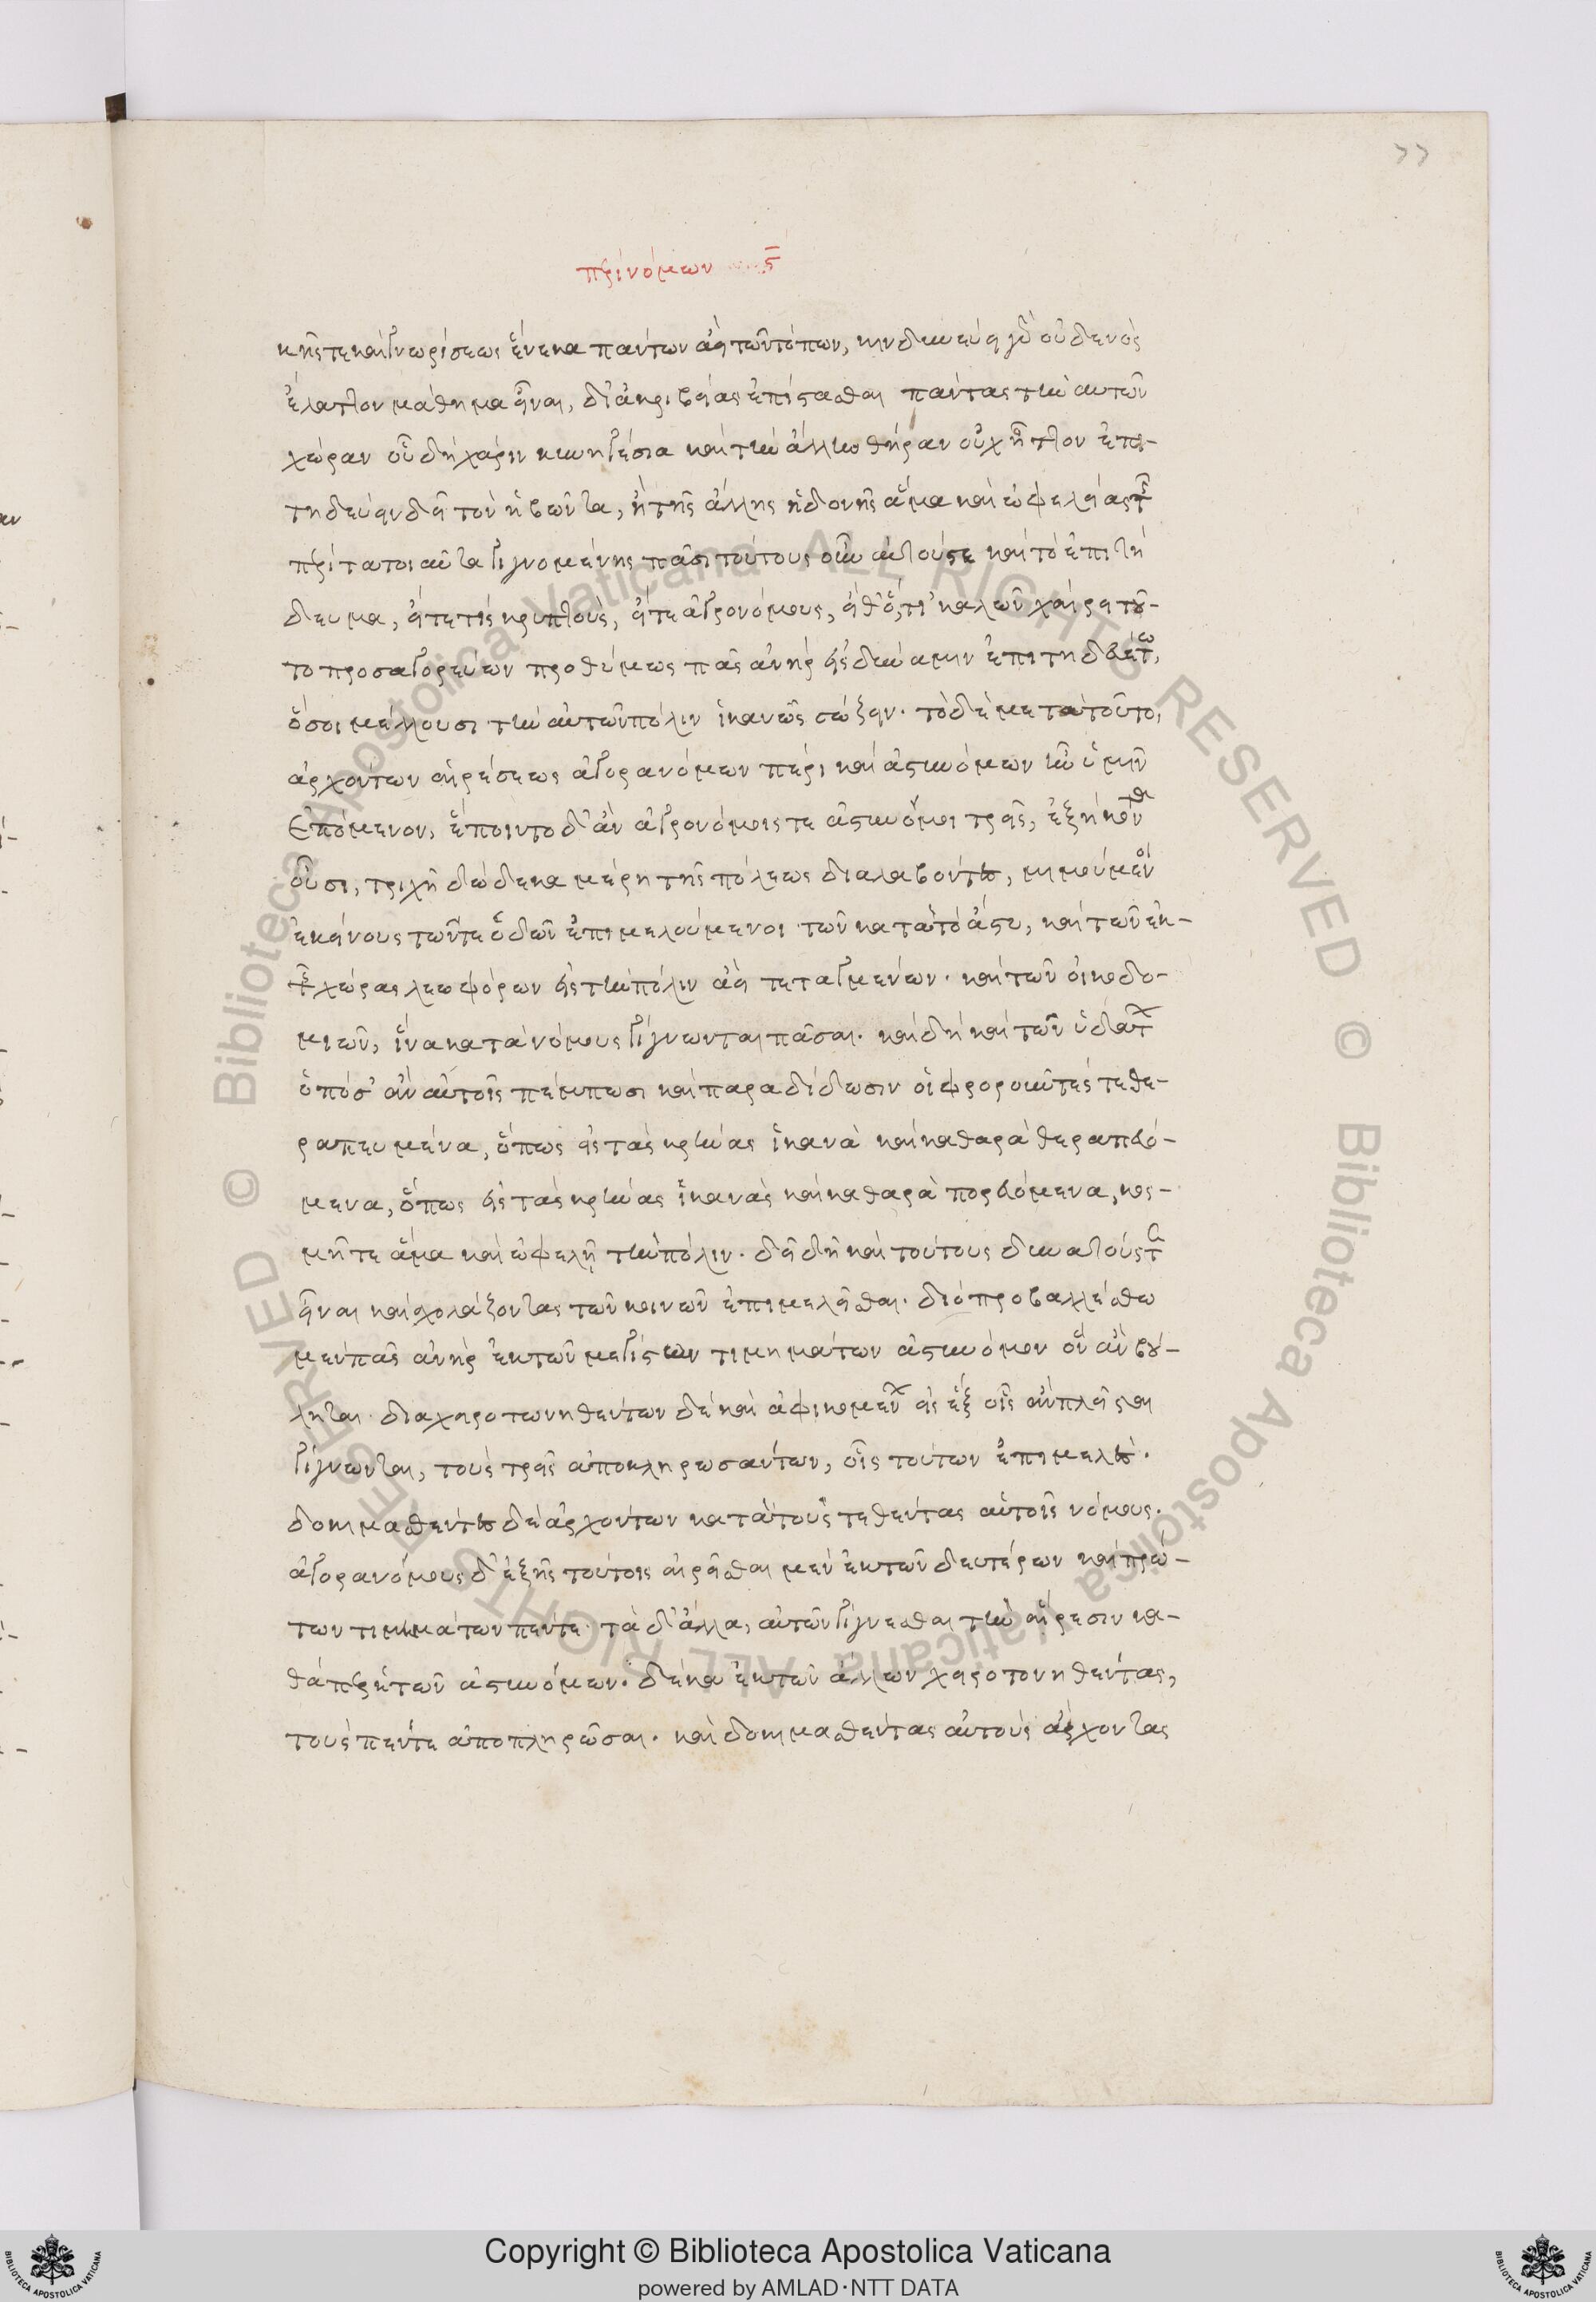 77
περὶ νόμων ϛ
κῆς τε καὶ γνωρίσεως ἕνεκα πάντων ἀεὶ τῶν τόπων, κινδυνεύει γὰρ οὐδενὸς
ἔλαττον μάθημα εἶναι, δι' ἀκριβείας ἐπίστασθαι πάντας τὴν αὑτῶν
χώραν οὗ δὴ χάριν κυνηγέσια καὶ τὴν ἄλλην θήραν οὐχ ἧττον ἐπι-
τηδεύειν δεῖ τὸν ἡβῶντα, ἢ τῆς ἄλλης ἡδονῆς ἅμα καὶ ὠφελείας τῆς
περὶ τὰ τοιαῦτα γιγνομένης πᾶσι τούτους οὖν αὐτούς τε καὶ τὸ ἐπιτή
δευμα, εἴτέ τις κρυπτοὺς, εἴτε ἀγρονόμους, εἴθ' ὅ,τι καλῶν χαίρει τοῦ-
το προσαγορεύων προθύμως πᾶς ἀνὴρ εἰς δύναμιν ἐπιτηδευέτω,
ὅσοι μέλλουσι τὴν αὑτῶν πόλιν ἱκανῶς σώζειν. τὸ δὲ μετὰ τοῦτο,
ἀρχόντων αἱρέσεως ἀγορανόμων πέρι καὶ ἀστυνόμων ἦν ἡμῖν
ἑπόμενον, ἕποιντο δ' ἂν ἀγρονόμοις τε ἀστυνόμοι τρεῖς, ἑξήκοντα
οὖσι, τριχῇ δώδεκα μέρη τῆς πόλεως διαλαβόντες, μιμούμενοι
ἐκείνους τῶν τε ὁδῶν ἐπιμελούμενοι τῶν κατὰ τὸ ἄστυ, καὶ τῶν ἐκ-
τῆς χώρας λεωφόρων εἰς τὴν πόλιν ἀεὶ τεταγμένων. καὶ τῶν οἰκοδο-
μιῶν, ἵνα κατὰ νόμους γίγνωνται πᾶσαι. καὶ δὴ καὶ τῶν ὑδάτων
ὁπόσ' ἂν αὐτοῖς πέμπωσι καὶ παραδίδωσιν οἱ φροροῦντές τεθε-
ραπευμένα, ὅπως εἰς τὰς κρήνας ἱκανὰ καὶ καθαρὰ θεραπευό-
μενα, ὅπως εἰς τὰς κρήνας ἱκανὰς καὶ καθαρὰ πορευόμενα, κοσ-
μῇ τε ἅμα καὶ ὠφελῇ τὴν πόλιν. δεῖ δὴ καὶ τούτους δυνατούς τε
εἶναι καὶ σχολάζοντας τῶν κοινῶν ἐπιμελεῖσθαι. διὸ προβαλλέσθω
μὲν πᾶς ἀνὴρ ἐκ τῶν μεγίστων τιμημάτων ἀστυνόμον ὃν ἂν βού-
ληται. διαχειροτωνηθέντων δὲ καὶ ἀφικομένων εἰς ἓξ οἷς ἂν πλεῖσται
γίγνωνται, τοὺς τρεῖς ἀποκληρωσάντων, οἷς τούτων ἐπιμελές.
δοκιμασθέντες δὲ ἀρχόντων κατὰ τοὺς τεθέντας αὐτοῖς νόμους.
ἀγορανόμους δ' ἑξῆς τούτοις αἱρεῖσθαι μὲν ἐκ τῶν δευτέρων καὶ πρώ-
των τιμημάτων πέντε. τὰ δ' ἄλλα, αὐτῶν γίγνεσθαι τὴν αἵρεσιν κα-
θάπερ ἡ τῶν ἀστυνόμων. δέκα ἐκ τῶν ἄλλων χειροτονηθέντας,
τοὺς πέντε ἀποπληρῶσαι. καὶ δοκιμασθέντας αὐτοὺς ἄρχοντας
© Biblioteca Apostolica Vaticana ALL RIGHTS RESERVED © Biblioteca Apostolica Vaticana ALL RIGHTS RESERVED
Copyright © Biblioteca Apostolica Vaticana
powered by AMLAD·NTT DATA
BIBLIOTECA APOSTOLICA VATICANA
BIBLIOTECA APOSTOLICA VATICANA